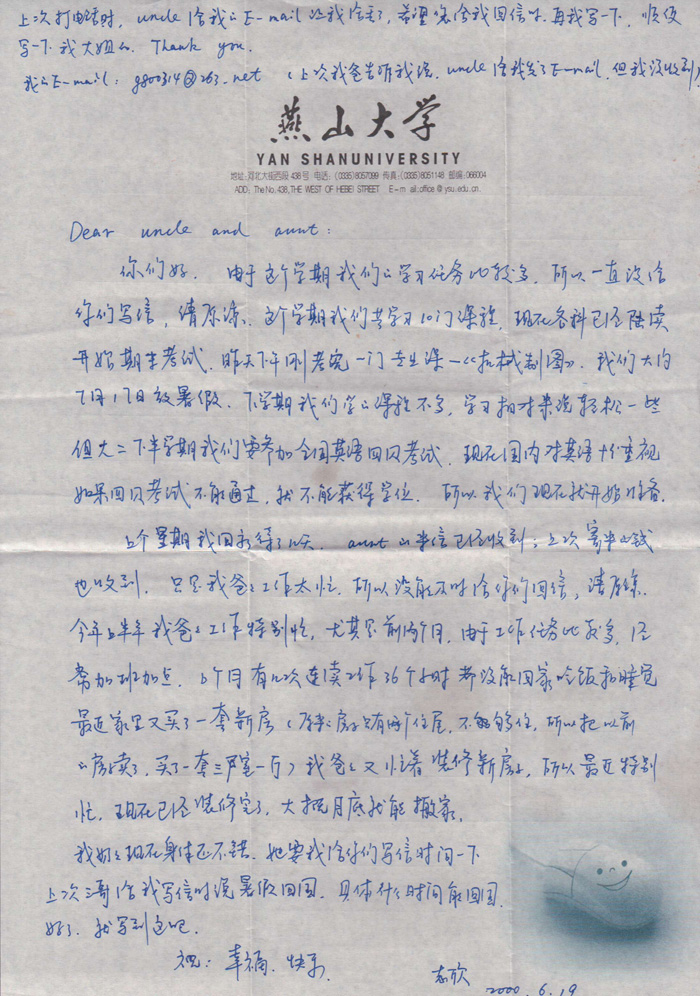 上次打电话时,uncle给我的E-mail地址我给丢了,希望您给我回信时再我写一下,顺便
写一下我大姐的. Thank you.
我的E-mail: g800314@263.net (上次我爸告诉我说,uncle给我发了E-mail,但我没收到)
燕山大学
YAN SHANUNIVERSITY
地址:河北大街西段438号 电话:(0335)8057099 传真:(0335)8051148 邮编:066004
ADD: The No.438,THE WEST OF HEBEI STREET E-mail:office@ysu.edu.cn.
Dear uncle and aunt:
你们好. 由于这个学期我们的学习任务比较多,所以一直没给
你们写信,请原谅. 这个学期我们共学习10门课程,现在各科已经陆续
开始期末考试. 昨天下午刚考完一门专业课—《机械制图》. 我们大约
7月17日放暑假. 下学期我们学的课程不多,学习相对来说轻松一些
但大二下半学期我们要参加全国英语四级考试. 现在国内对英语十分重视
如果四级考试不能通过,就不能获得学位. 所以我们现在就开始准备.
上个星期我回家待了几天. aunt的来信已经收到;上次寄来的钱
也收到. 只是我爸爸工作太忙. 所以没能及时给你们回信,请原谅.
今年上半年我爸爸工作特别忙,尤其是前两个月,由于工作任务比较多,经
常加班加点. 6个月有几次连续工作36个小时都没能回家吃饭和睡觉
最近家里又买了一套新房(原来的房子只有两个住屋,不够住,所以把以前
的房子卖了,买了一套三室一厅)我爸爸又忙着装修新房子,所以最近特别
忙. 现在已经装修完了,大概月底就能搬家.
我奶奶现在身体还不错. 她要我给你们写信时问一下
上次三哥给我写信时说暑假回国. 具体什么时间能回国.
好了. 就写到这吧.
祝:幸福、快乐
志欣
2000.6.19